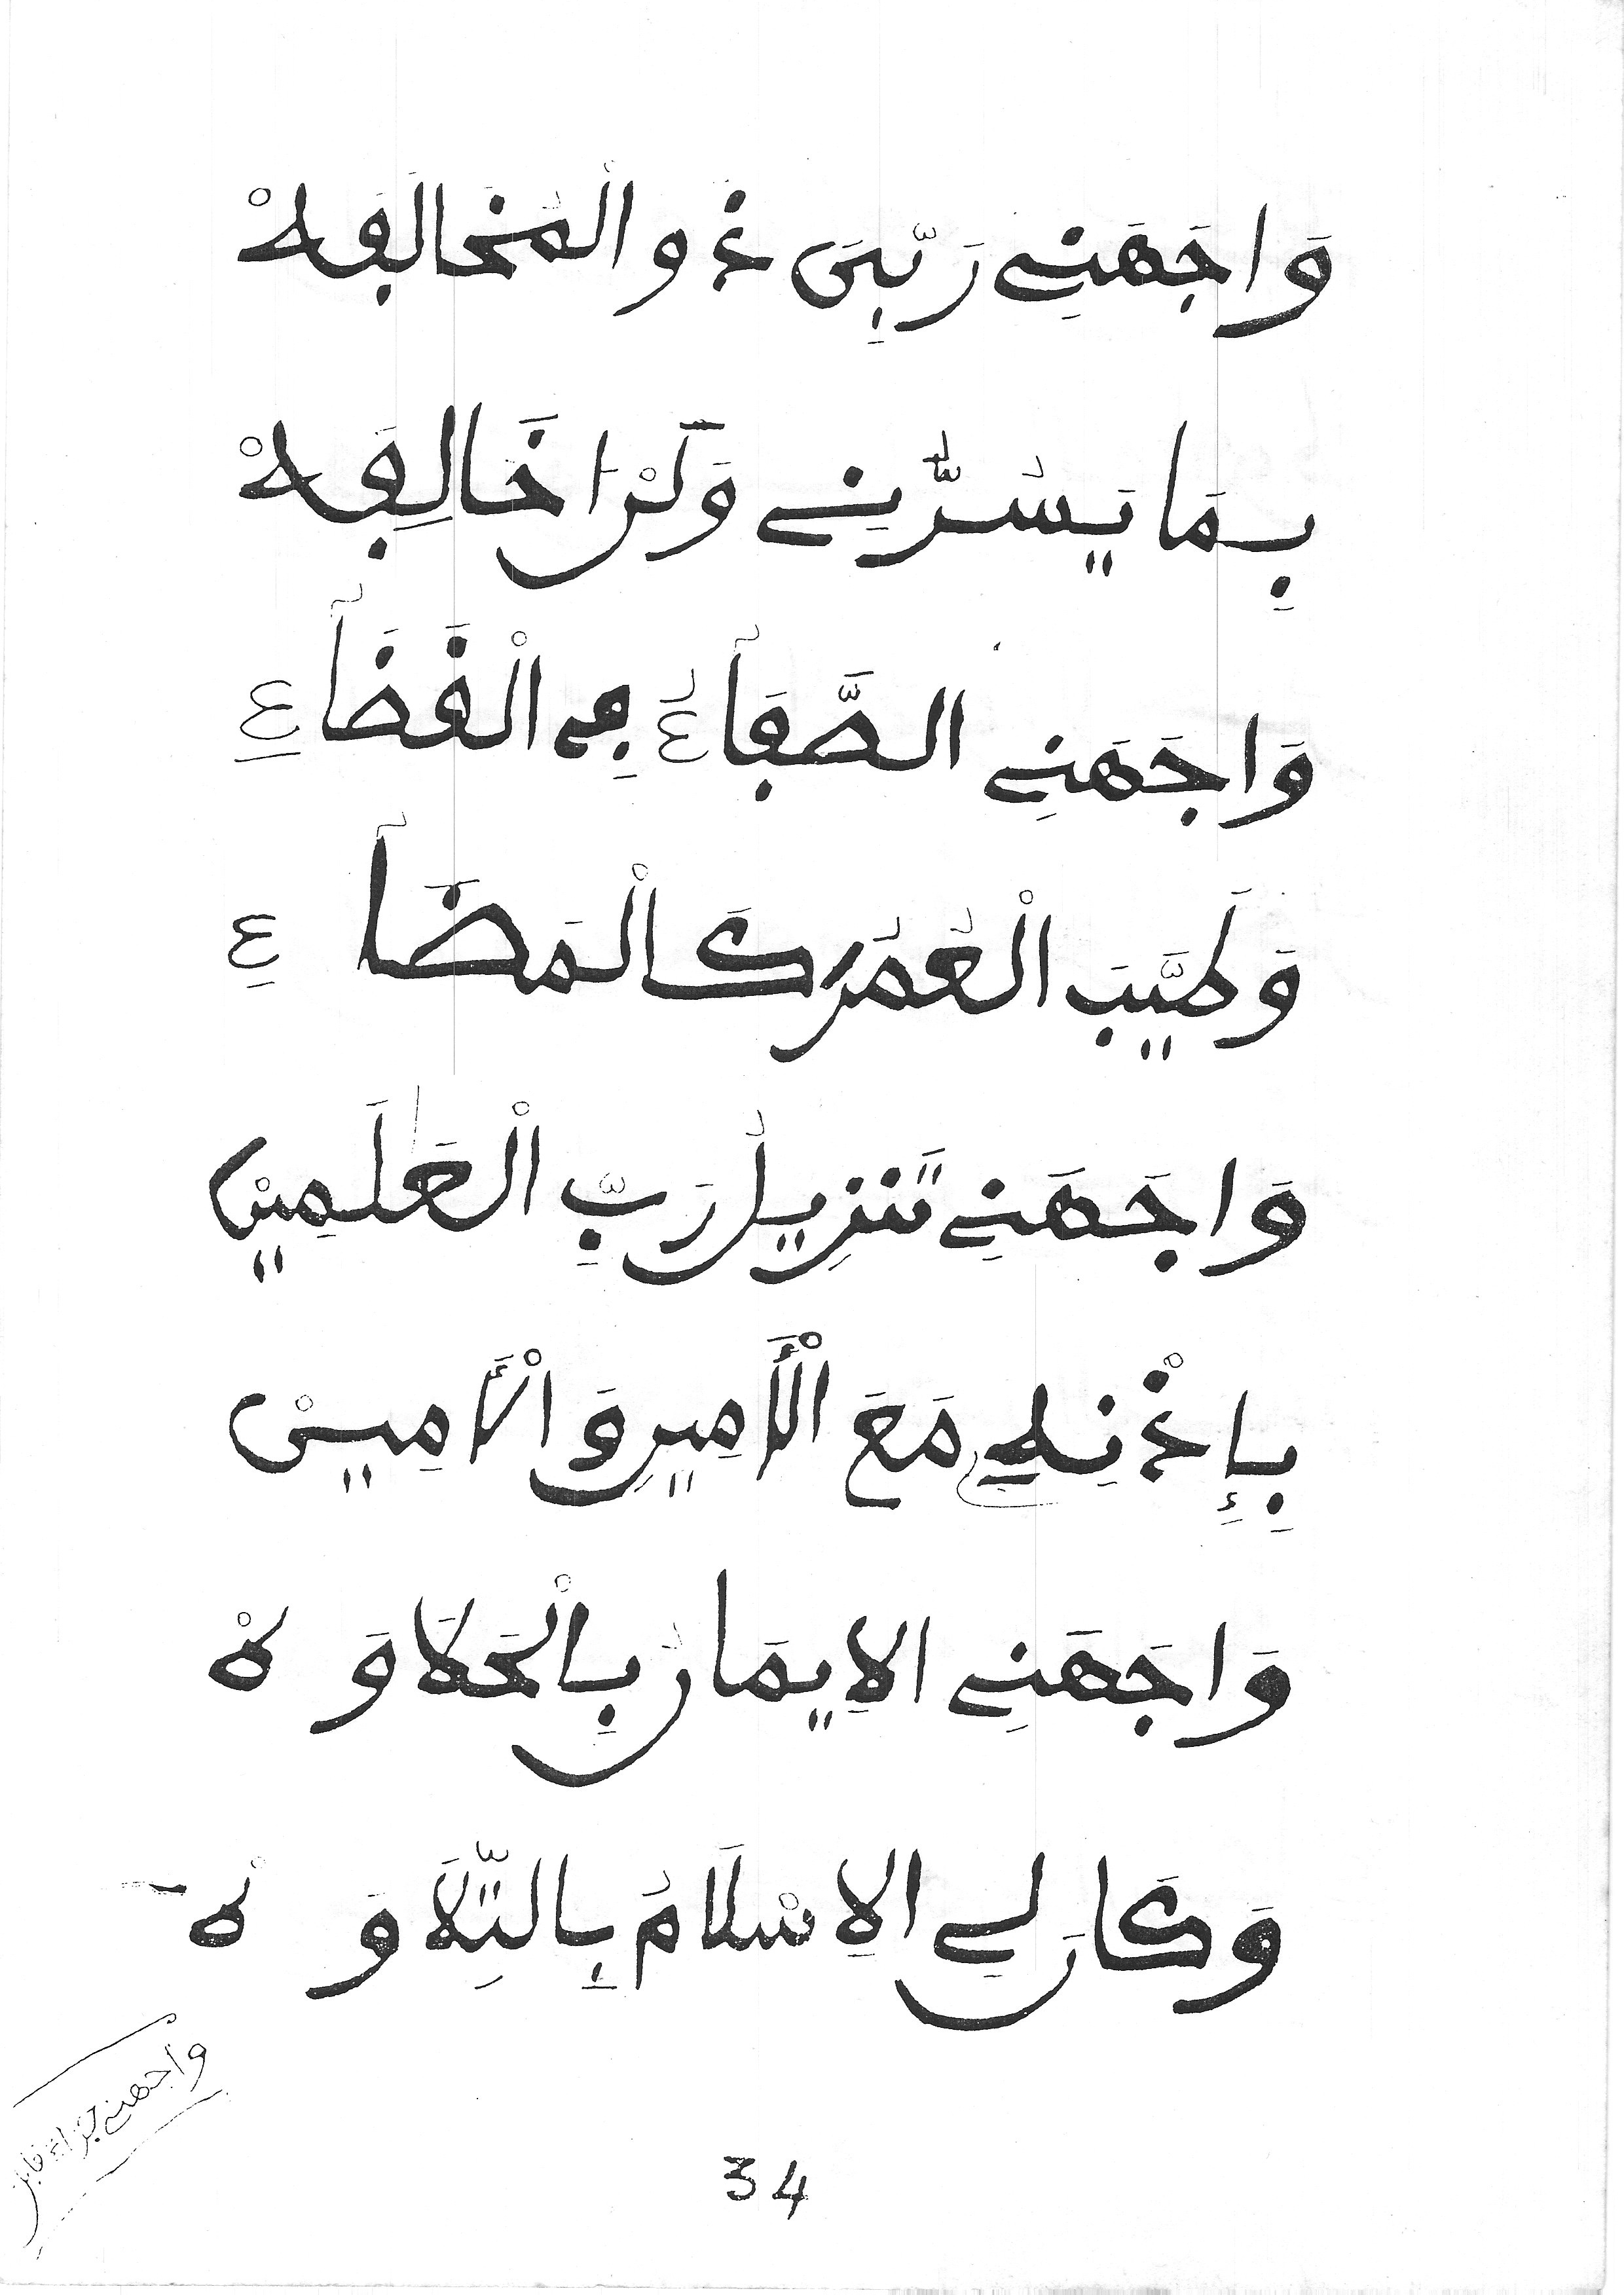 وَاجَهَنِي رَبِّيَ ذُو الْمُخَالَفَهْ
بِمَا يَسُرُّنِي وَلَنْ اُخَالِفَهْ
وَاجَهَنِي الصَّفَآءُ فِي الْقَضَآءِ
وَطَيَّبَ الْعُمُرَ كَالْمَضَآءِ
وَاجَهَنِي تَنْزِيلُ رَبِّ الْعَٰلَمِينْ
بِإِذْنِهِ مَعَ الْأَمِيرِ وَالْأَمِينْ
وَاجَهَنِي الاِيمَانُ بِالْحَلَاوَهْ
وَكَانَ لِي الاِسْلَامُ بِالتِّلَاوَهْ
واجهني جزاء قابل
34